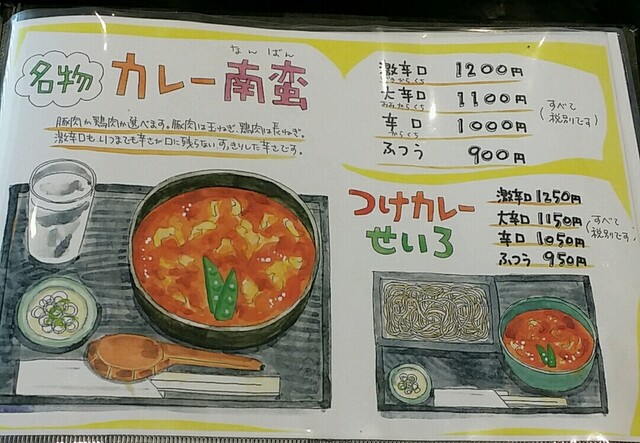 名物
カレー南蛮
なんばん
豚肉か鶏肉が選べます。豚肉は玉ねぎ、鶏肉は長ねぎ。
激辛口も、いつまでも辛さが口に残らない、すっきりした辛さです。
激辛口 1200円
げきからくち
大辛口 1100円
おおからくち
辛口 1000円
からくち
ふつう 900円
(すべて
税別です)
つけカレー
せいろ
激辛口 1250円
大辛口 1150円
辛口 1050円
ふつう 950円
(すべて
税別です)